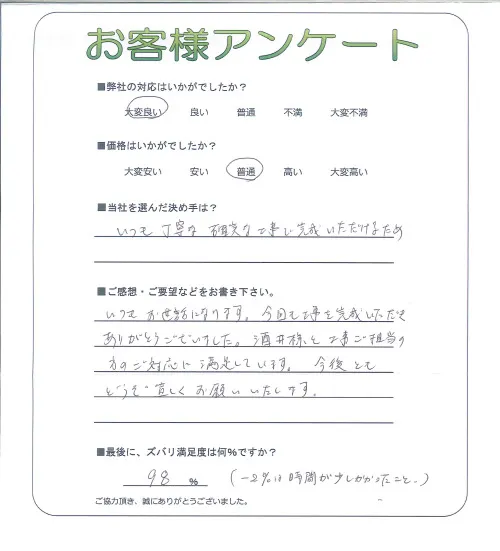 お客様アンケート
■弊社の対応はいかがでしたか？
大変良い 良い 普通 不満 大変不満
■価格はいかがでしたか？
大変安い 安い 普通 高い 大変高い
■当社を選んだ決め手は？
いつも丁寧な確実な工事で完成いただけるため
■ご感想・ご要望などをお書き下さい。
いつもお世話になります。今回も工事を完成いただき
ありがとうございました。酒井様と工事ご担当の
方のご対応に満足しています。今後とも
どうぞ宜しくお願いいたします。
■最後に、ズバリ満足度は何%ですか？
98 % （−2%は時間が少しかかったこと。）
ご協力頂き、誠にありがとうございました。